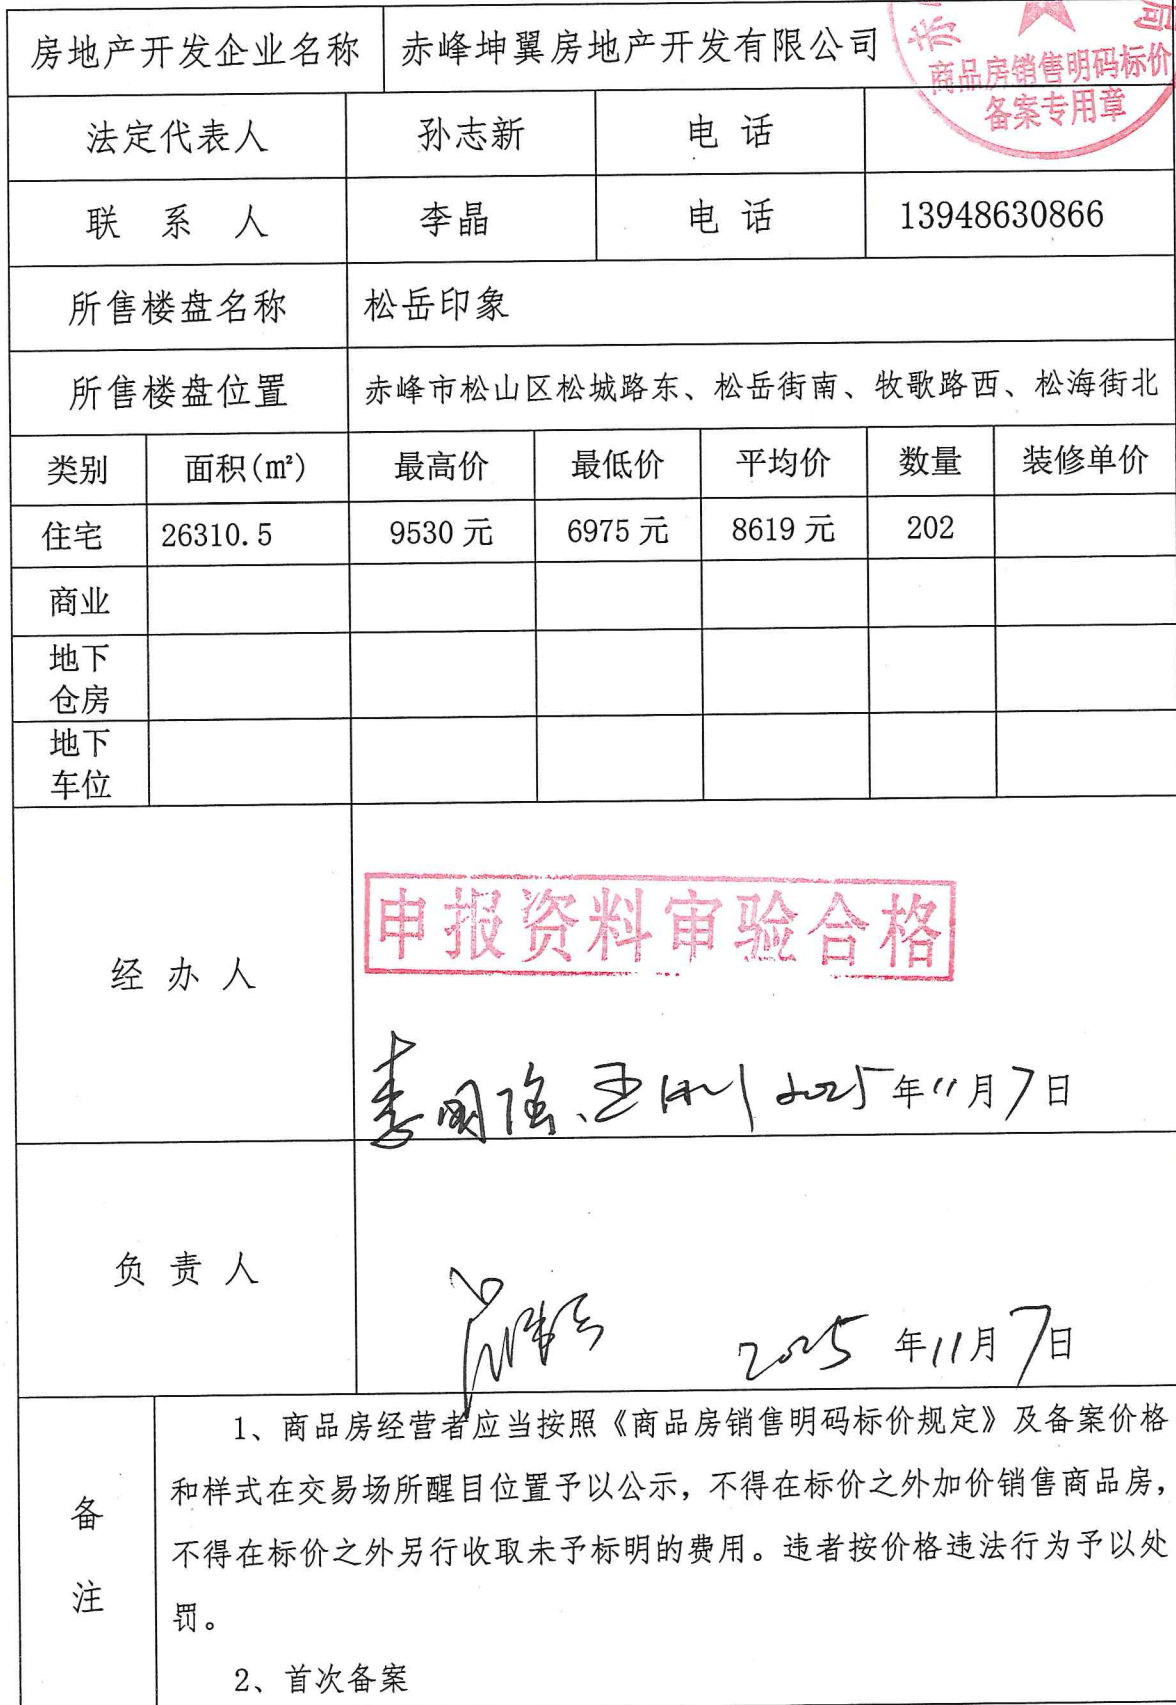 房地产开发企业名称 赤峰坤翼房地产开发有限公司
商品房销售明码标价
备案专用章
法定代表人 孙志新 电 话
联 系 人 李晶 电 话 13948630866
所售楼盘名称 松岳印象
所售楼盘位置 赤峰市松山区松城路东、松岳街南、牧歌路西、松海街北
类别 面积(㎡) 最高价 最低价 平均价 数量 装修单价
住宅 26310.5 9530 元 6975 元 8619 元 202
商业
地下
仓房
地下
车位
申报资料审验合格
经 办 人
2025年11月7日
负 责 人
2025 年11月7日
备
注
1、商品房经营者应当按照《商品房销售明码标价规定》及备案价格
和样式在交易场所醒目位置予以公示，不得在标价之外加价销售商品房，
不得在标价之外另行收取未予标明的费用。违者按价格违法行为予以处
罚。
2、首次备案